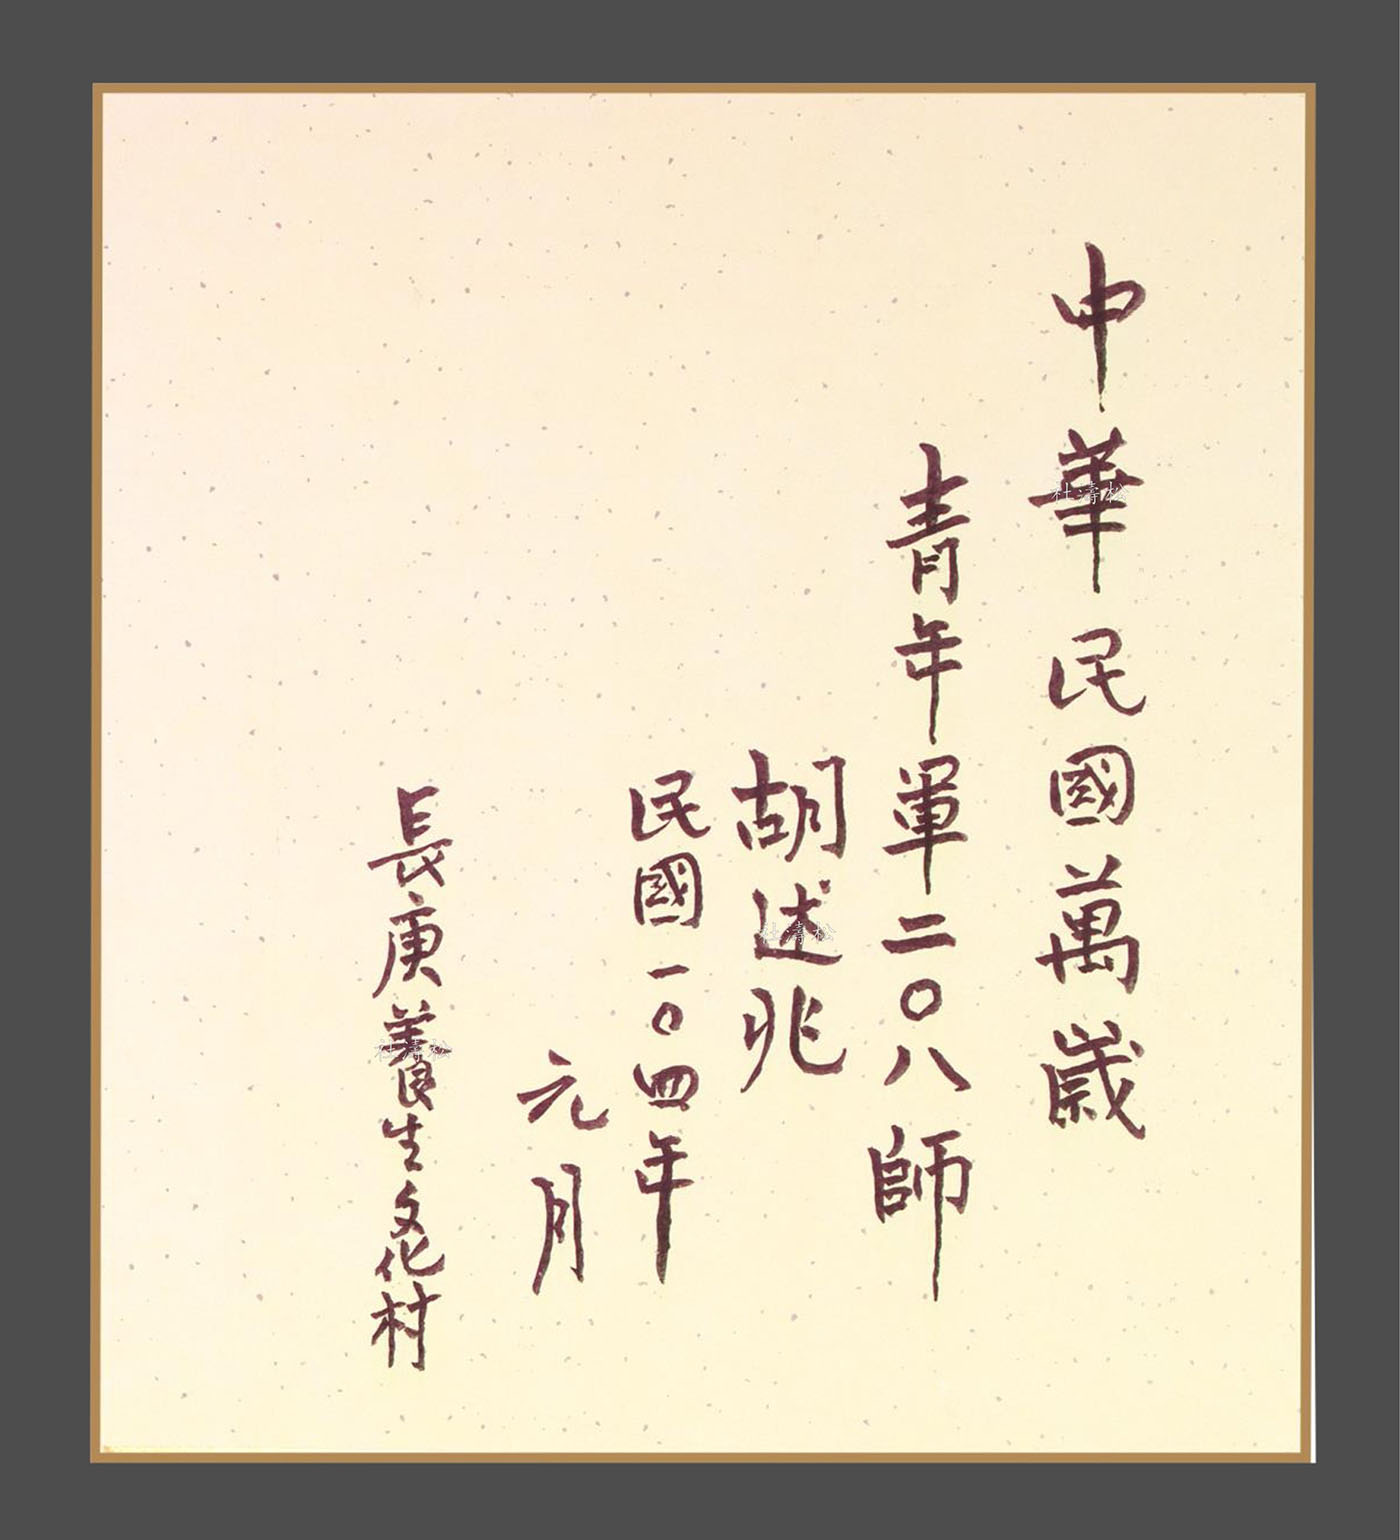 中華民國萬歲
青年軍二〇八師
胡述兆
民國一〇四年
元月
長庚養生文化村
杜濤松
杜濤松
杜濤松